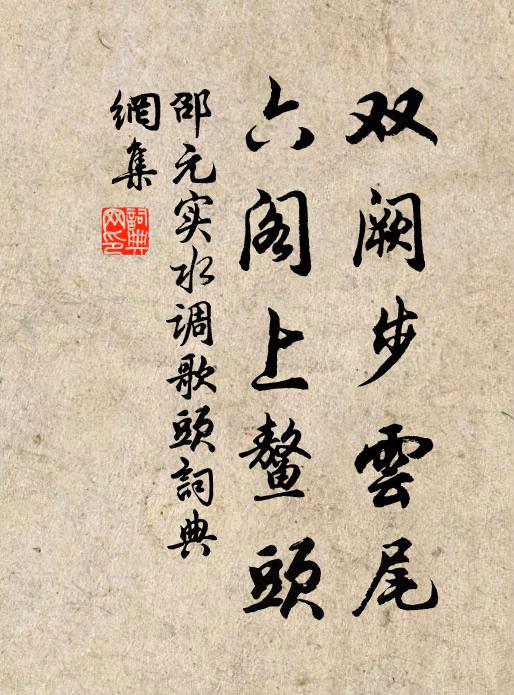 双阙步雲尾
六阁上鳌頭
邵元实水调歌頭詞典
網集
詞典
网印